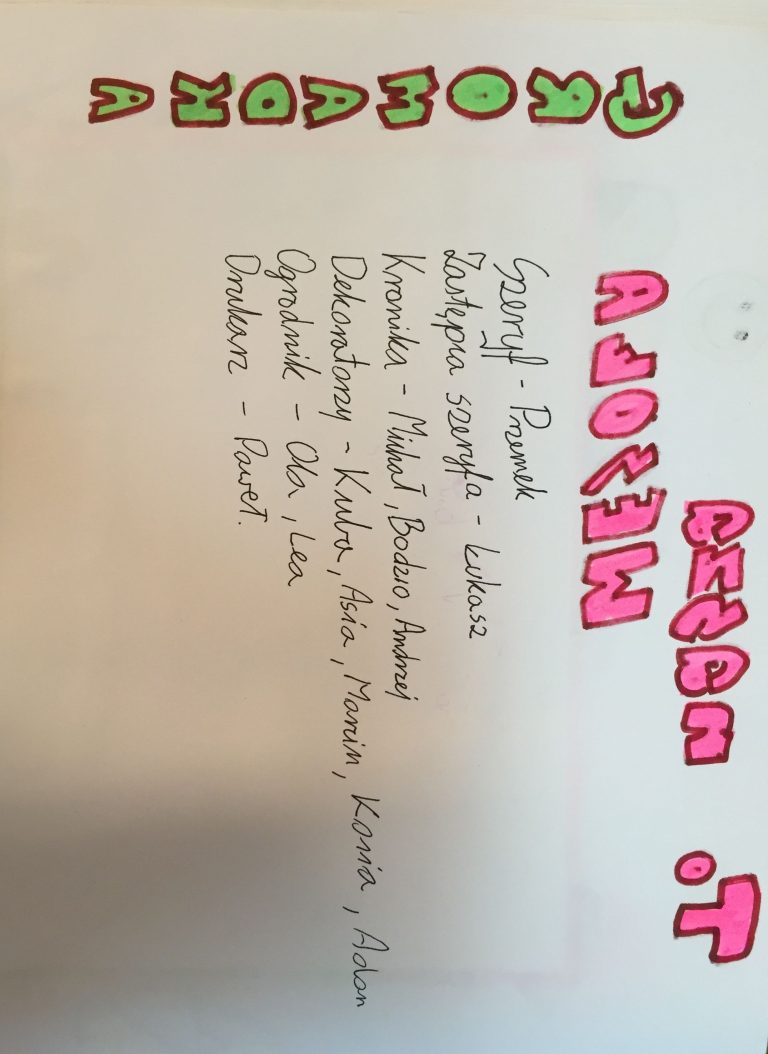 TO NASZA
WESOŁA
GROMADKA
Szeryf - Przemek
Zastępca szeryfa - Łukasz
Kronika - Michał, Bodzio, Andrzej
Dekoratorzy - Kuba, Asia, Marcin, Kasia, Adam
Ogrodnik - Ola, Lea
Drukarz - Paweł.